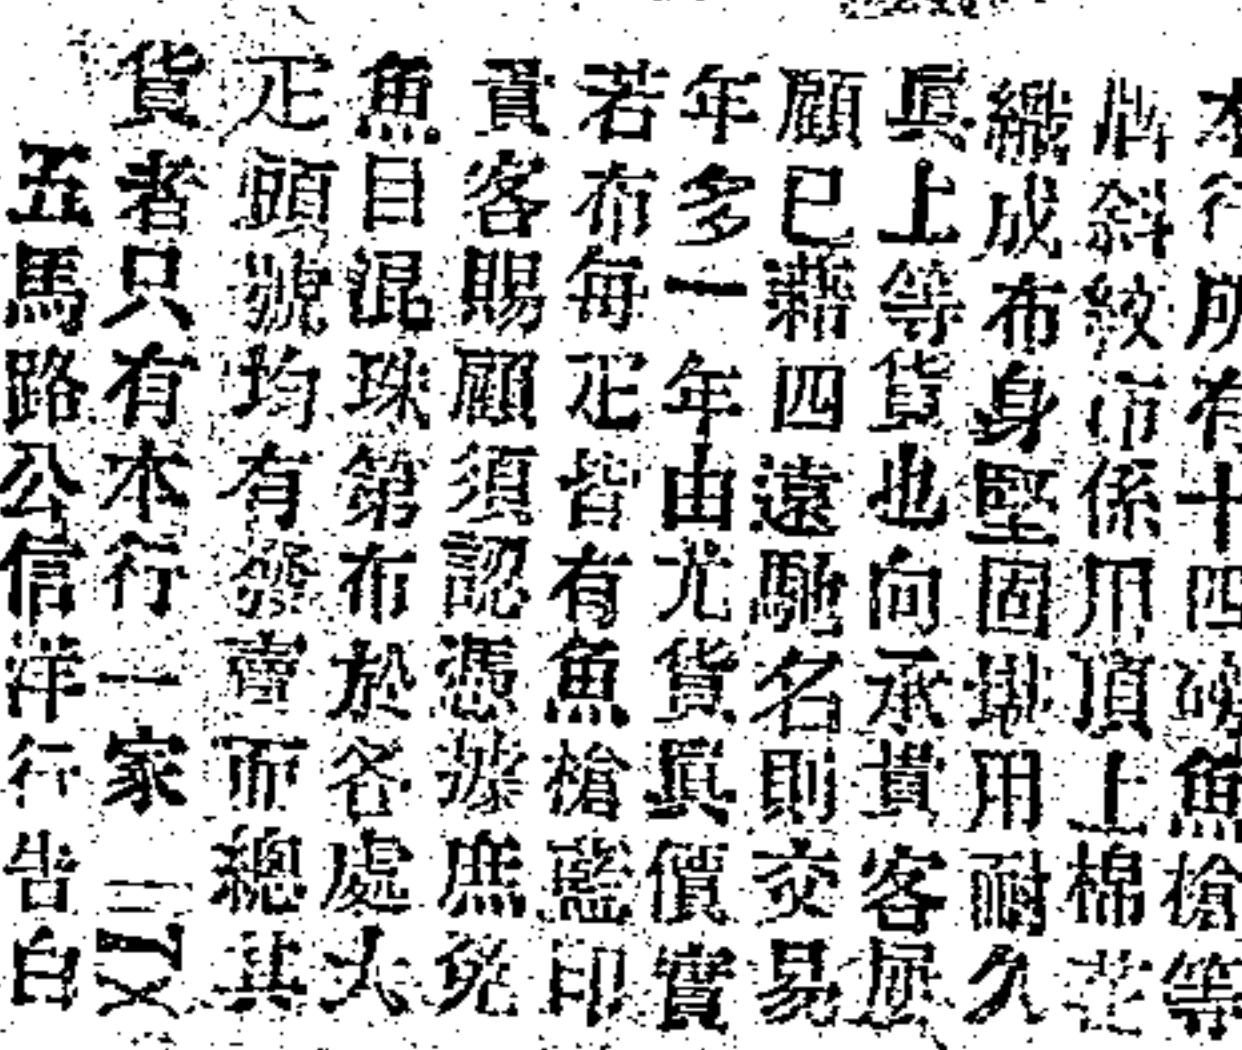 本行所有十四磅魚槍等
牌斜紋布係用頂上棉花
織成布身堅固禦用耐久
眞上等貨也向承貴客屢
顧已藉四遠馳名則交易
年多一年由尤貨眞價實
若布每疋皆有魚槍藍印
貴客賜顧須認憑據庶免
魚目混珠第布於各處大
疋頭號均有發賣而總其
貨者只有本行一家
五馬路公信洋行告白